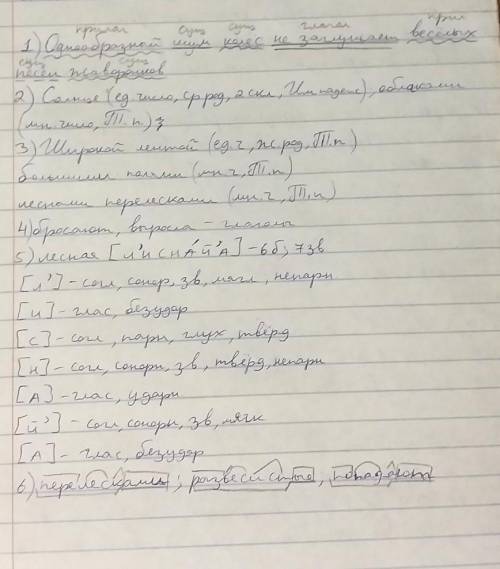 прилаг сущ сущ глагол прил
1) Однообразной шум колес не заглушает веселых
сущ сущ
песен жаворонков
2) Солнце (ед число, ср род, 2 скл, Им падеж), облаками
(мн. число, Т.п.);
3) Широкой лентой (ед.ч, ж род, Т.п)
большими полями (мн.ч, Т.п)
лесными перелесками (мн.ч, Т.п)
4) бросают, выросла - глаголы
5) лесная [л'иснай'а] - 6б, 7зв
[л'] - согл, сонор, зв, мягк, непарн
[и] - глас, безудар
[с] - согл, парн, глух, твёрд
[н] - согл, сонорн, зв, твёрд, непарн
[А] - глас, ударн
[й'] - согл, сонорн, зв, мягк
[А] - глас, безудар
6) перелесками, развесистые,